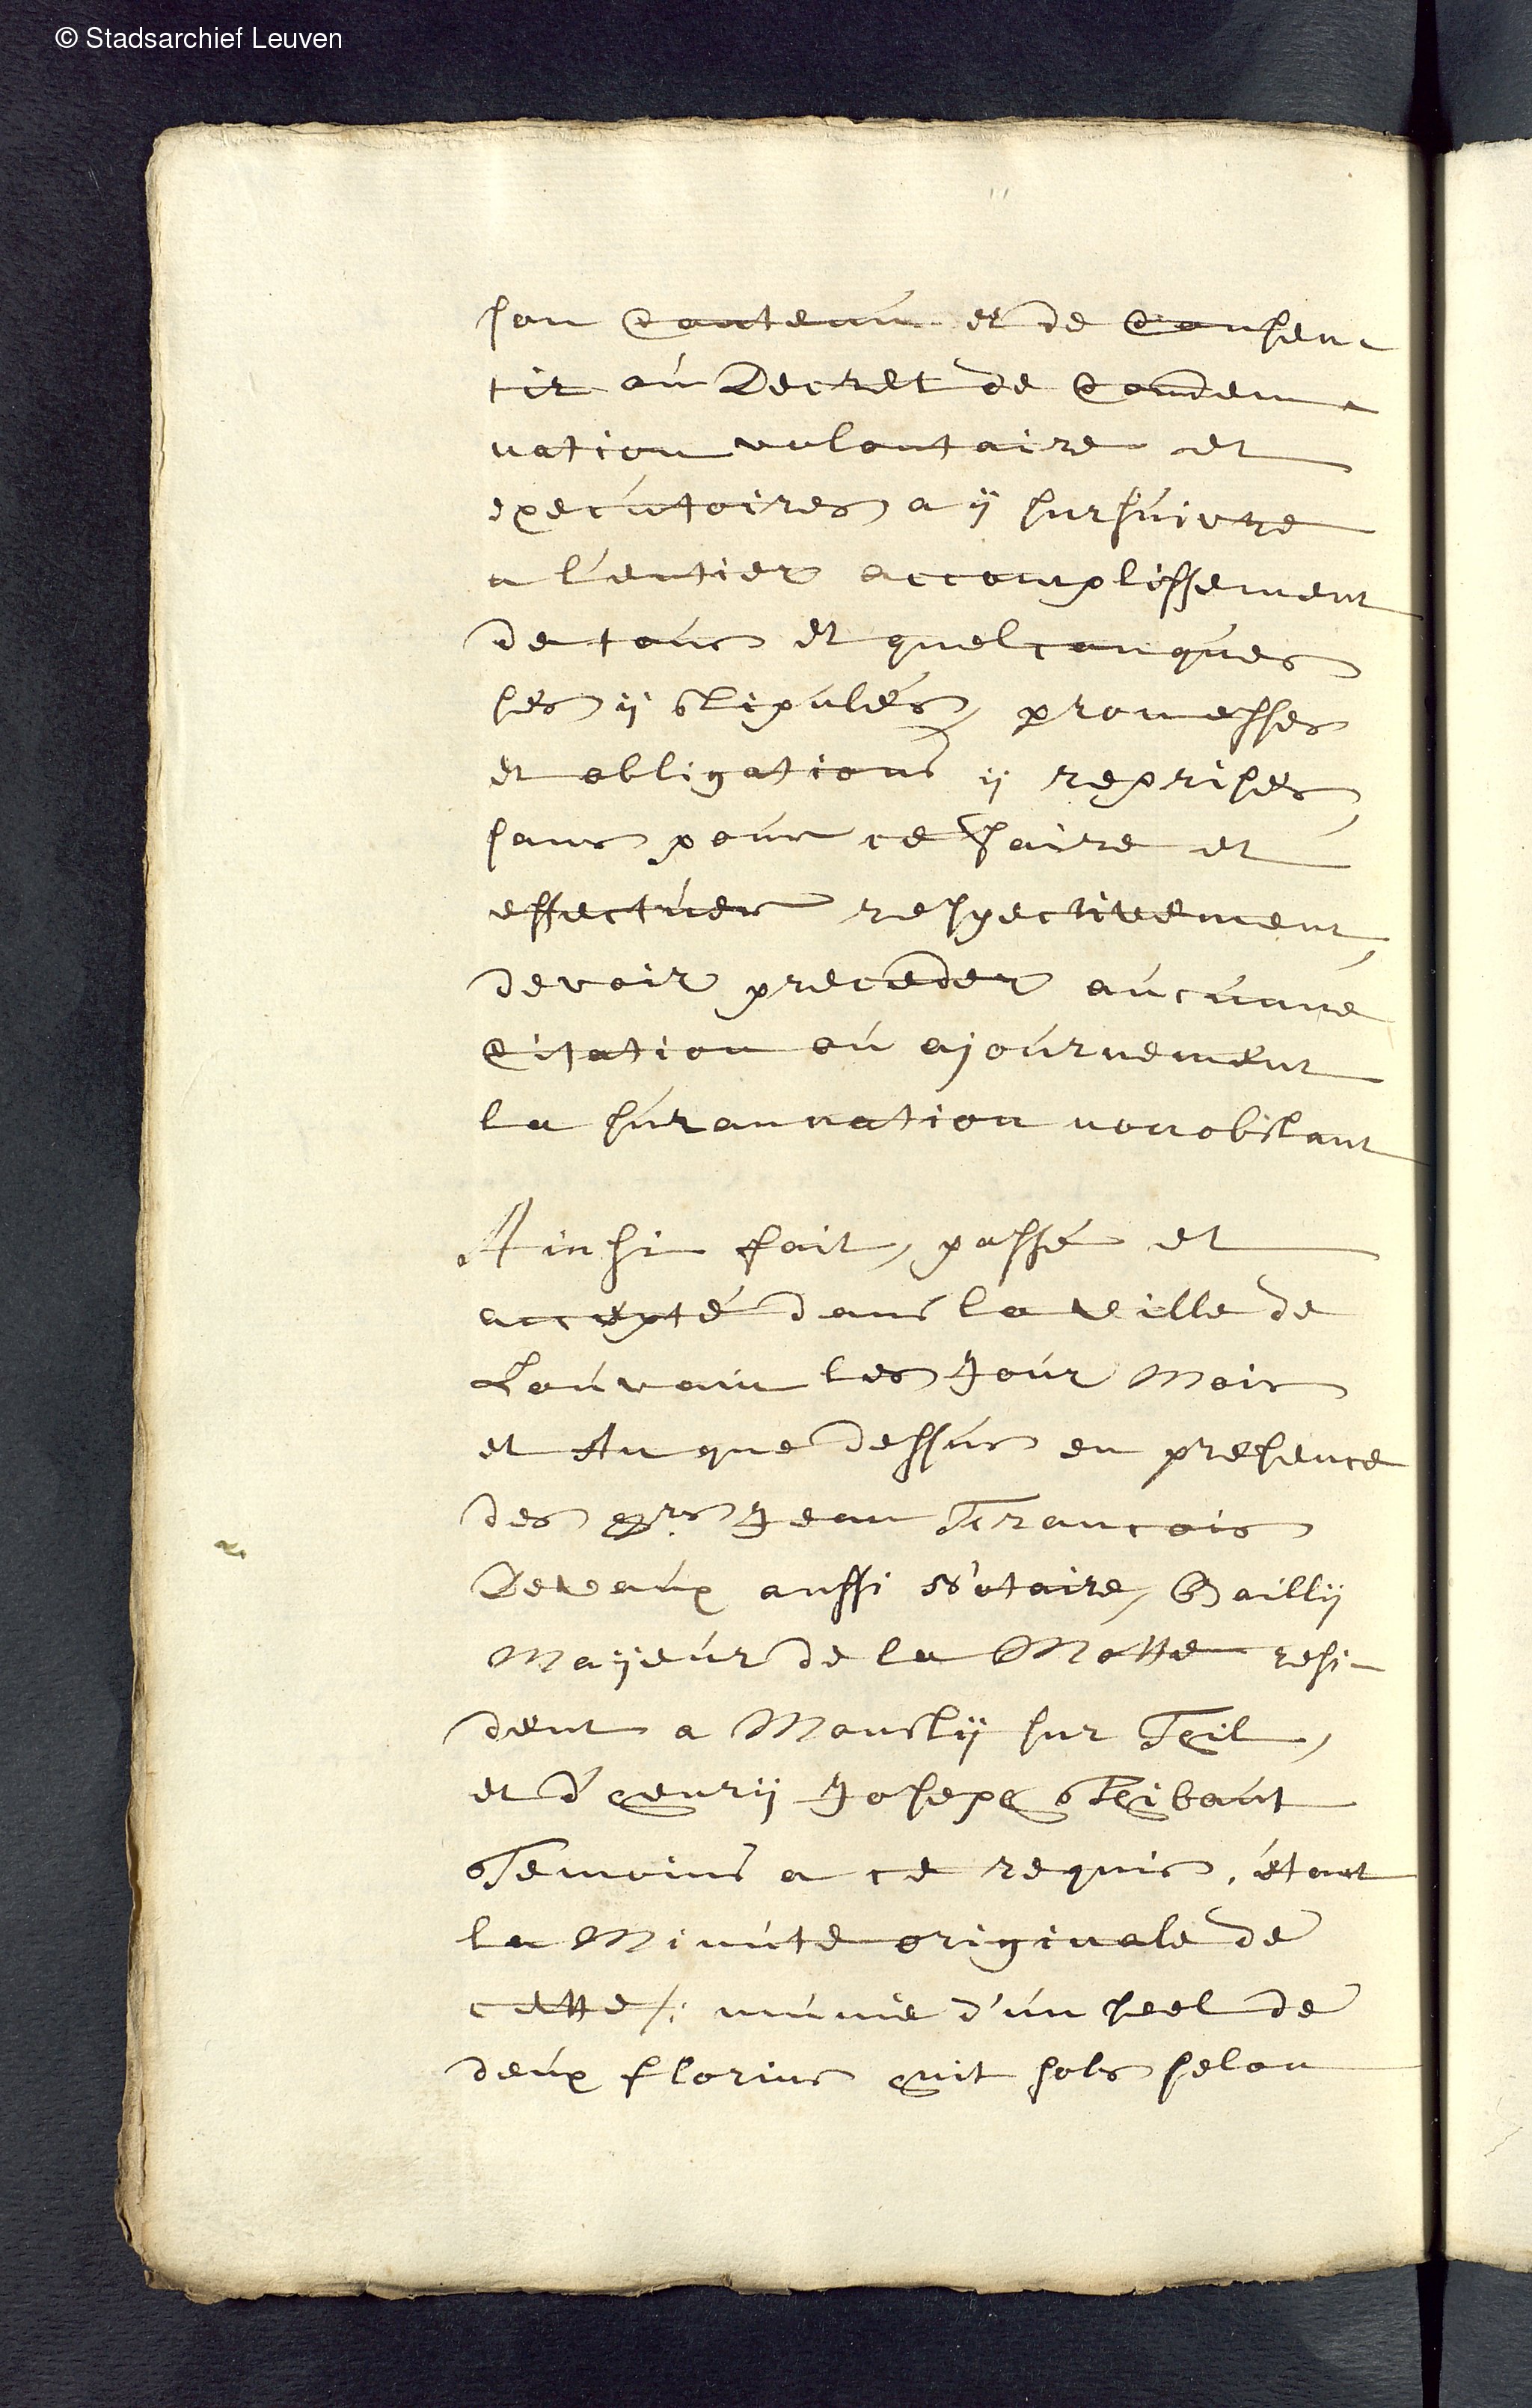 © Stadsarchief Leuven
son Contenú et de Consen-
tir aú Decret de Condem-
nation volontaire et
executoires a ÿ sursúivre
a l'entier accomplissement
de toús et quelconqúes
ses ÿ stipulés, promesses
et obligations ÿ reprises,
sans poúr ce faire et
effectúer respectivement,
devoir preceder aúcúnne
Citation oú ajoúrnement
la súrannation nonobstant
Ainsi fait, passé et
accepté dans la ville de
Loúvain les Joúr Mois
et An que dessús en presence
des Jean Francois
Deveaúx aussi Notaire, Baillÿ
Maÿeúr de la Motte resi-
dent a Monstÿ sur Thil,
et d'henrÿ Joseph Thibaút
Temoins a ce requis, étant
la Minúte originale de
cette /: múnie d'ún seel de
deúx florins huit sols selon